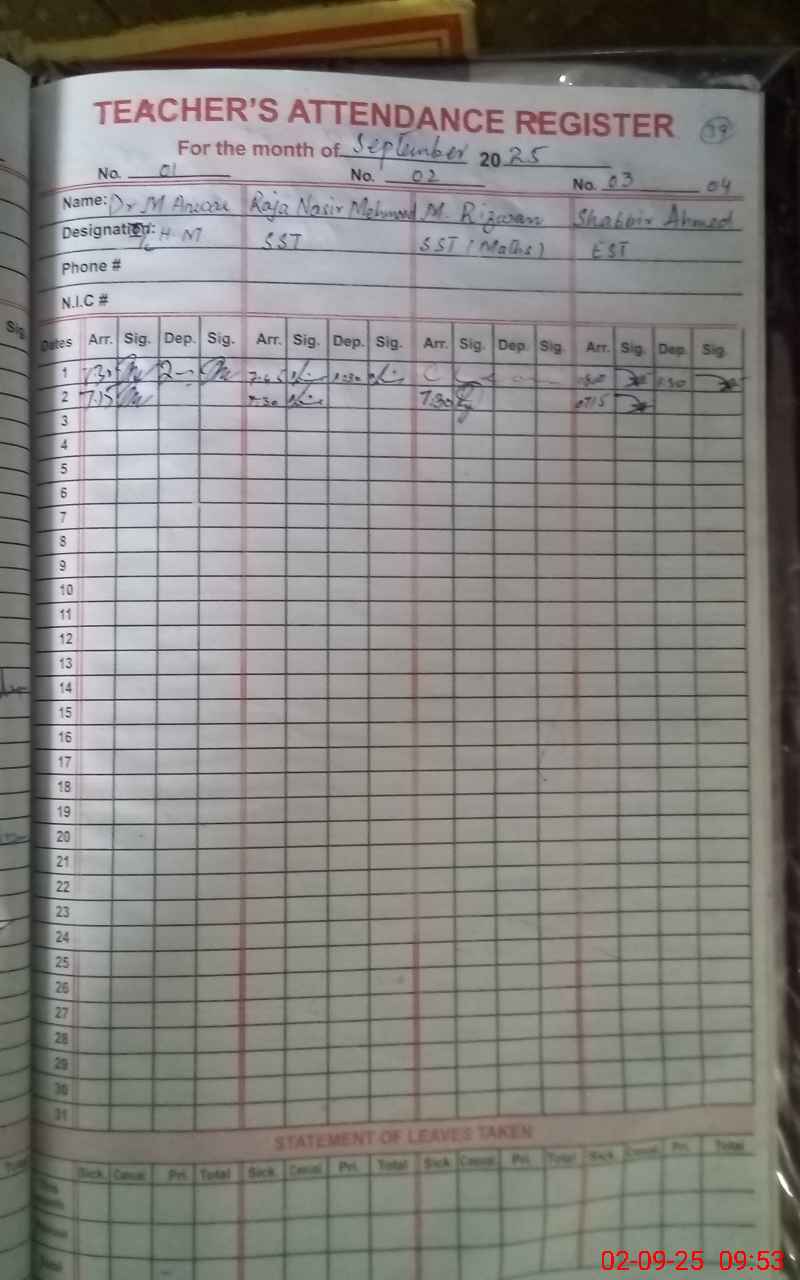 TEACHER'S ATTENDANCE REGISTER 39
For the month of September 2025
No. 01 No. 02 No. 03 04
Name: Dr M Anwar Raja Nasir Mehmood M. Rizwan Shabbir Ahmed
Designation: I/c H M SST SST (Maths) EST
Phone #
N.I.C #
Dates Arr. Sig. Dep. Sig. Arr. Sig. Dep. Sig. Arr. Sig. Dep. Sig. Arr. Sig. Dep. Sig.
1 7.45 1.30 1.30
2 7.15 7.30 7.30 0715
3
4
5
6
7
8
9
10
11
12
13
14
15
16
17
18
19
20
21
22
23
24
25
26
27
28
29
30
31
STATEMENT OF LEAVES TAKEN
Sick Casual Pri. Total Sick Casual Pri. Total Sick Casual Pri. Total Sick Casual Pri. Total
02-09-25 09:53